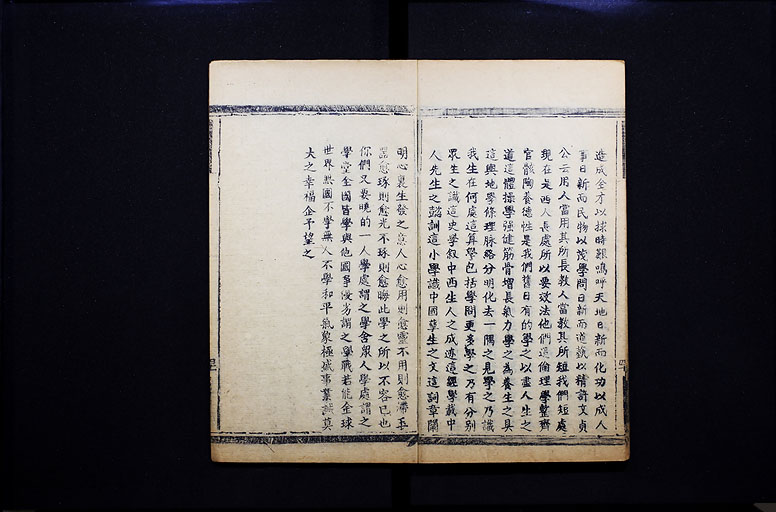 造成全才以拯時艱嗚呼天地日新而化功以成人
事日新而民物以茂學問日新而道藝以精許文貞
公云用人當用其所長教人當教其所短我們短處
現在是西人長處所以要效法他們這倫理學整齊
官骸陶養德性是我們舊日有的學之以盡人生之
道這體操學强健筋骨增長氣力學之為養生之具
這輿地學條理脉絡分明化去一隅之見學之乃識
我生在何處這算學包括學問更多學之乃有分别
眾生之識這史學叙中西生人之成迹這經學載中
人先生之懿訓這小學識中國孳生之文這詞章闡
明心裏生發之意人心愈用則愈靈不用則愈滯玉
器愈琢則愈光不琢則愈晦此學之所以不容已也
你們又要曉的一人學處謂之學舍眾人學處謂之
學堂全國皆學與他國爭優劣謂之學戰若能全球
世界無國不學無人不學和平氣象極盛事業誠莫
大之幸福企予望之